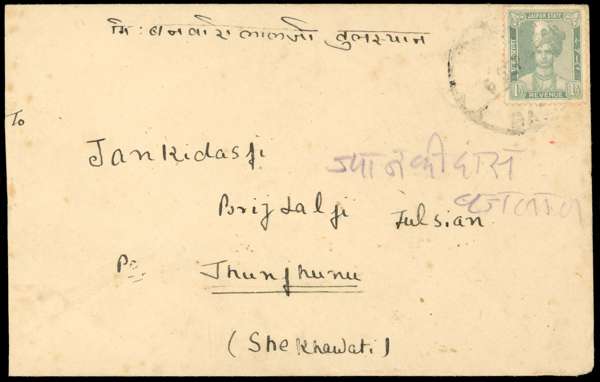 मि: बनवारी लालजी तुलस्यान
JAIPUR STATE
1½ 1½
REVENUE
To
Jankidasji
Brijlalji Tulsian
Jhunjhunu
(Shekhawati)